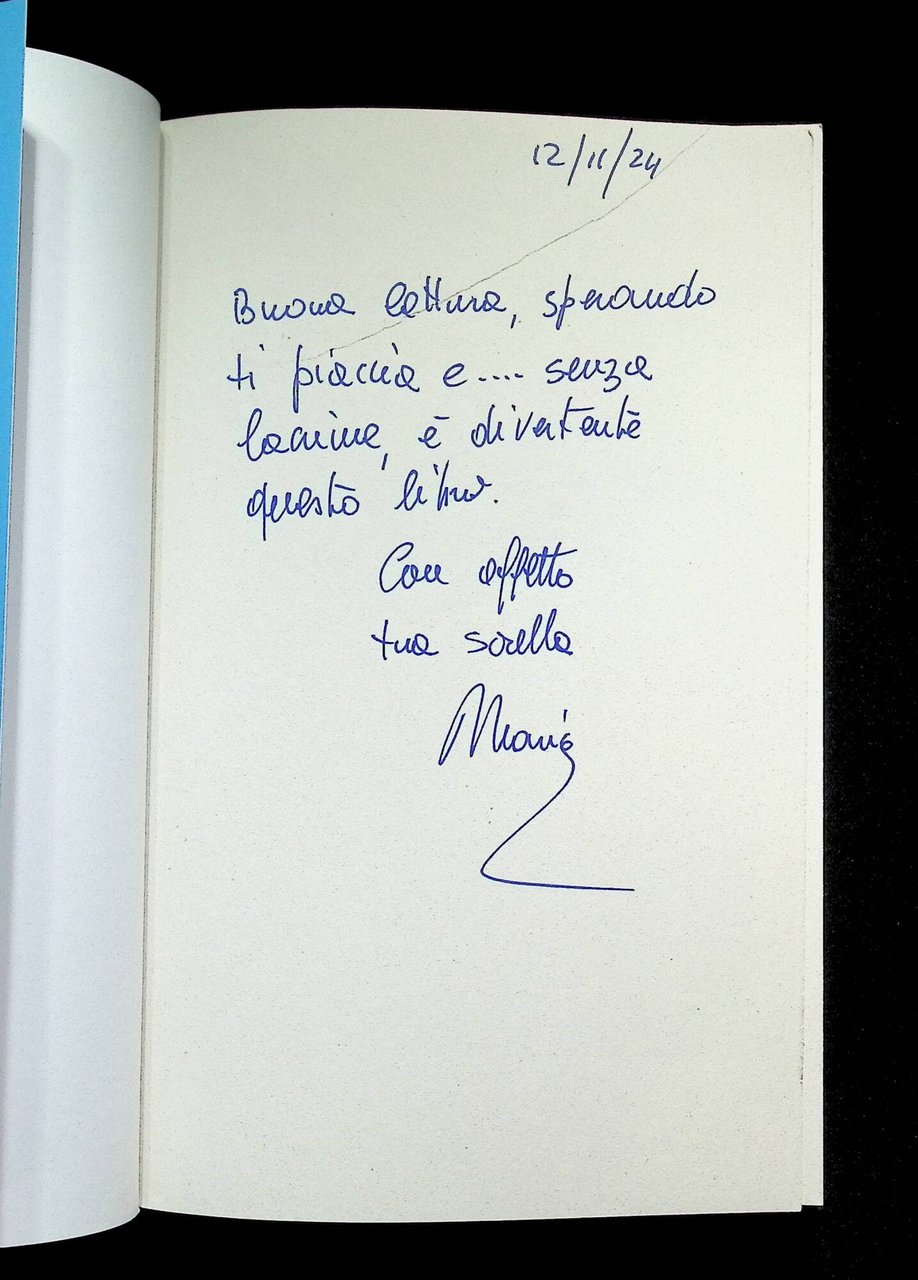 12/11/24
Buona lettura, sperando
ti piaccia e.... senza
lacrime, è divertente
questo libro.
Con affetto
tua sorella
Maria